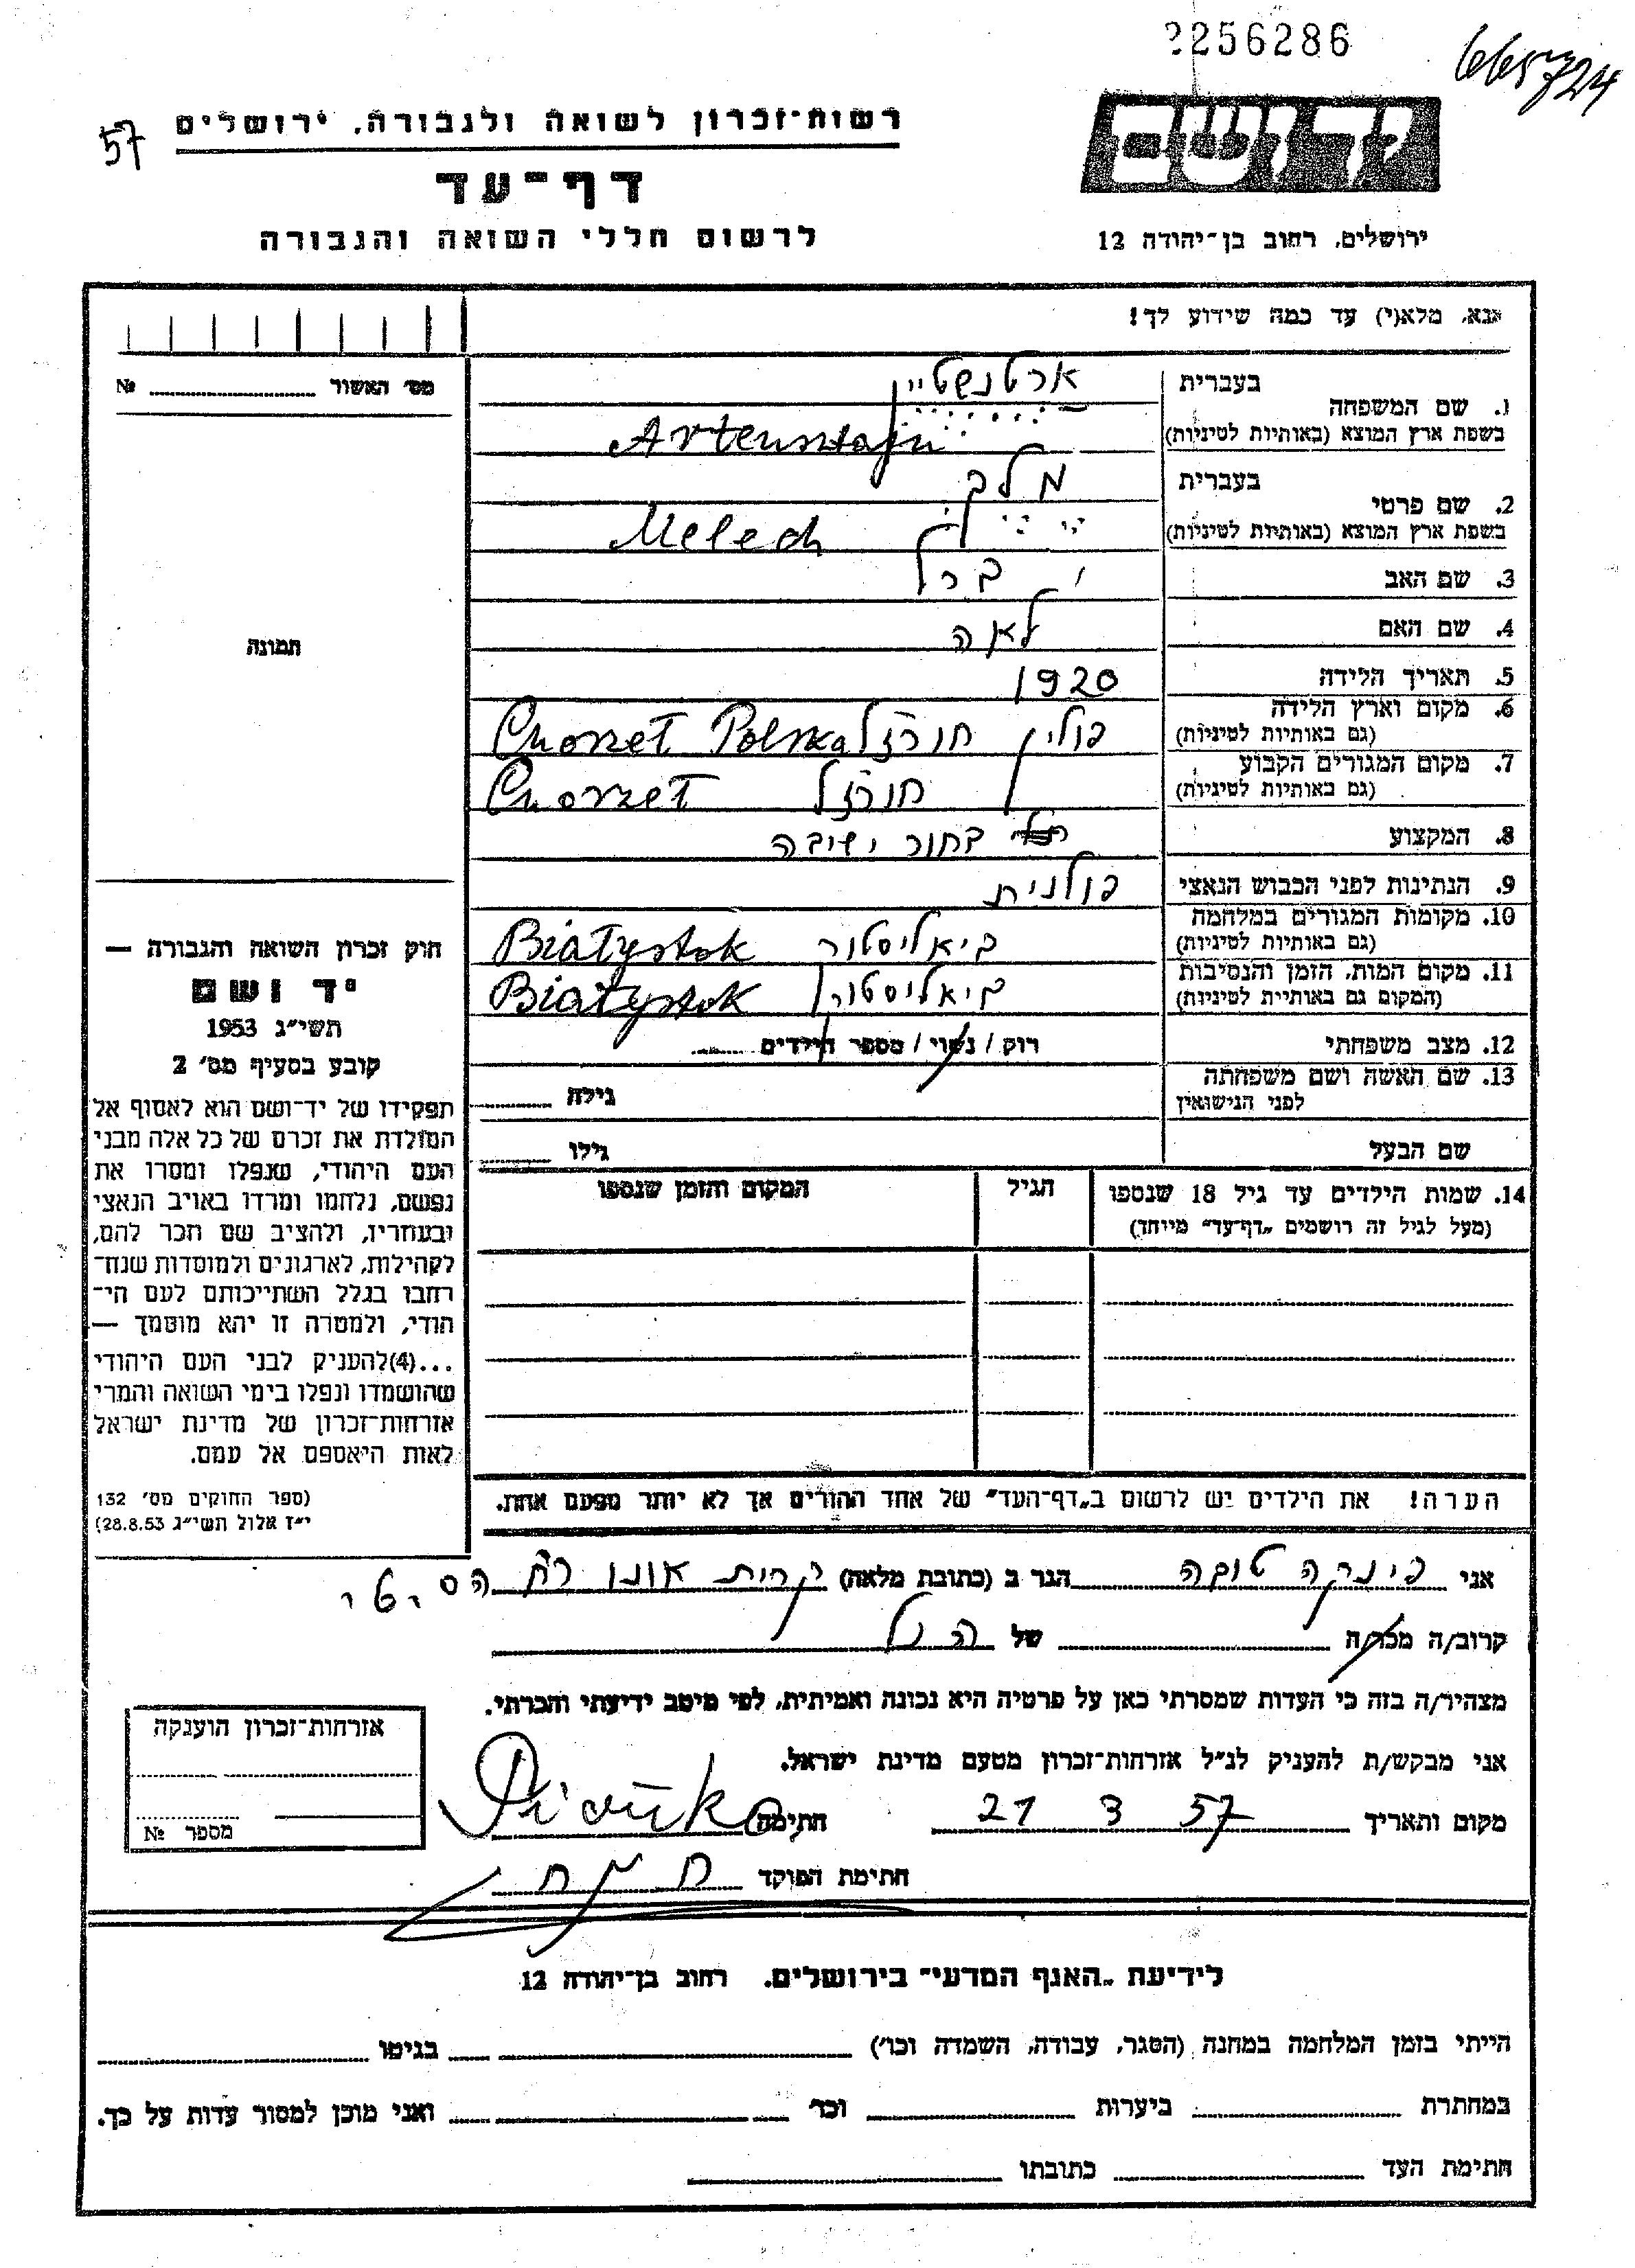 2256286
665724
57
רשות־זכרון לשואה ולגבורה, ירושלים
דף־עד
לרשום חללי השואה והגבורה
יד ושם
ירושלים, רחוב בן־יהודה 12
אנא, מלא(י) עד כמה שידוע לך!
מס׳ האשור № 
תמונה
חוק זכרון השואה והגבורה —
יד ושם
תשי״ג 1953
קובע בסעיף מס׳ 2
תפקידו של יד־ושם הוא לאסוף אל
המולדת את זכרם של כל אלה מבני
העם היהודי, שנפלו ומסרו את
נפשם, נלחמו ומרדו באויב הנאצי
ובעוזריו, ולהציב שם וזכר להם,
לקהילות, לארגונים ולמוסדות שנח־
רבו בגלל השתייכותם לעם הי־
הודי, ולמטרה זו יהא מוסמך —
...(4)להעניק לבני העם היהודי
שהושמדו ונפלו בימי השואה והמרי
אזרחות־זכרון של מדינת ישראל
לאות היאספם אל עמם.
(ספר החוקים מס׳ 132
י״ז אלול תשי״ג 28.8.53)
1. שם המשפחה בעברית ארטנשטיין
בשפת ארץ המוצא (באותיות לטיניות) Artensztajn
2. שם פרטי בעברית מלך
בשפת ארץ המוצא (באותיות לטיניות) Melech
3. שם האב
4. שם האם לאה
5. תאריך הלידה 1920
6. מקום וארץ הלידה (גם באותיות לטיניות) פולין חורזל Chorzel Polska
7. מקום המגורים הקבוע (גם באותיות לטיניות) חורזל Chorzel
8. המקצוע בחור ישיבה
9. הנתינות לפני הכבוש הנאצי פולנית
10. מקומות המגורים במלחמה (גם באותיות לטיניות) ביאליסטוק Białystok
11. מקום המות, הזמן והנסיבות (המקום גם באותיות לטיניות) ביאליסטוק Białystok
12. מצב משפחתי רוק / נשוי / מספר הילדים
13. שם האשה ושם משפחתה לפני הנישואין גילה
שם הבעל גילו
14. שמות הילדים עד גיל 18 שנספו הגיל המקום והזמן שנספו
(מעל לגיל זה רושמים „דף־עד״ מיוחד)
הערה! את הילדים יש לרשום ב„דף־העד״ של אחד ההורים אך לא יותר מפעם אחת.
אני הגר ב (כתובת מלאה) קרית אונו
קרוב/ה מכר/ה של הנ״ל
מצהיר/ה בזה כי העדות שמסרתי כאן על פרטיה היא נכונה ואמיתית, לפי מיטב ידיעתי והכרתי.
אני מבקש/ת להעניק לנ״ל אזרחות־זכרון מטעם מדינת ישראל.
מקום ותאריך 21 3 57 חתימה
חתימת הפוקד
אזרחות־זכרון הוענקה
מספר №
לידיעת „האגף המדעי״ בירושלים, רחוב בן־יהודה 12
הייתי בזמן המלחמה במחנה (הסגר, עבודה, השמדה וכו׳) בגיטו
במחתרת ביערות וכו׳ ואני מוכן למסור עדות על כך.
חתימת העד כתובתו